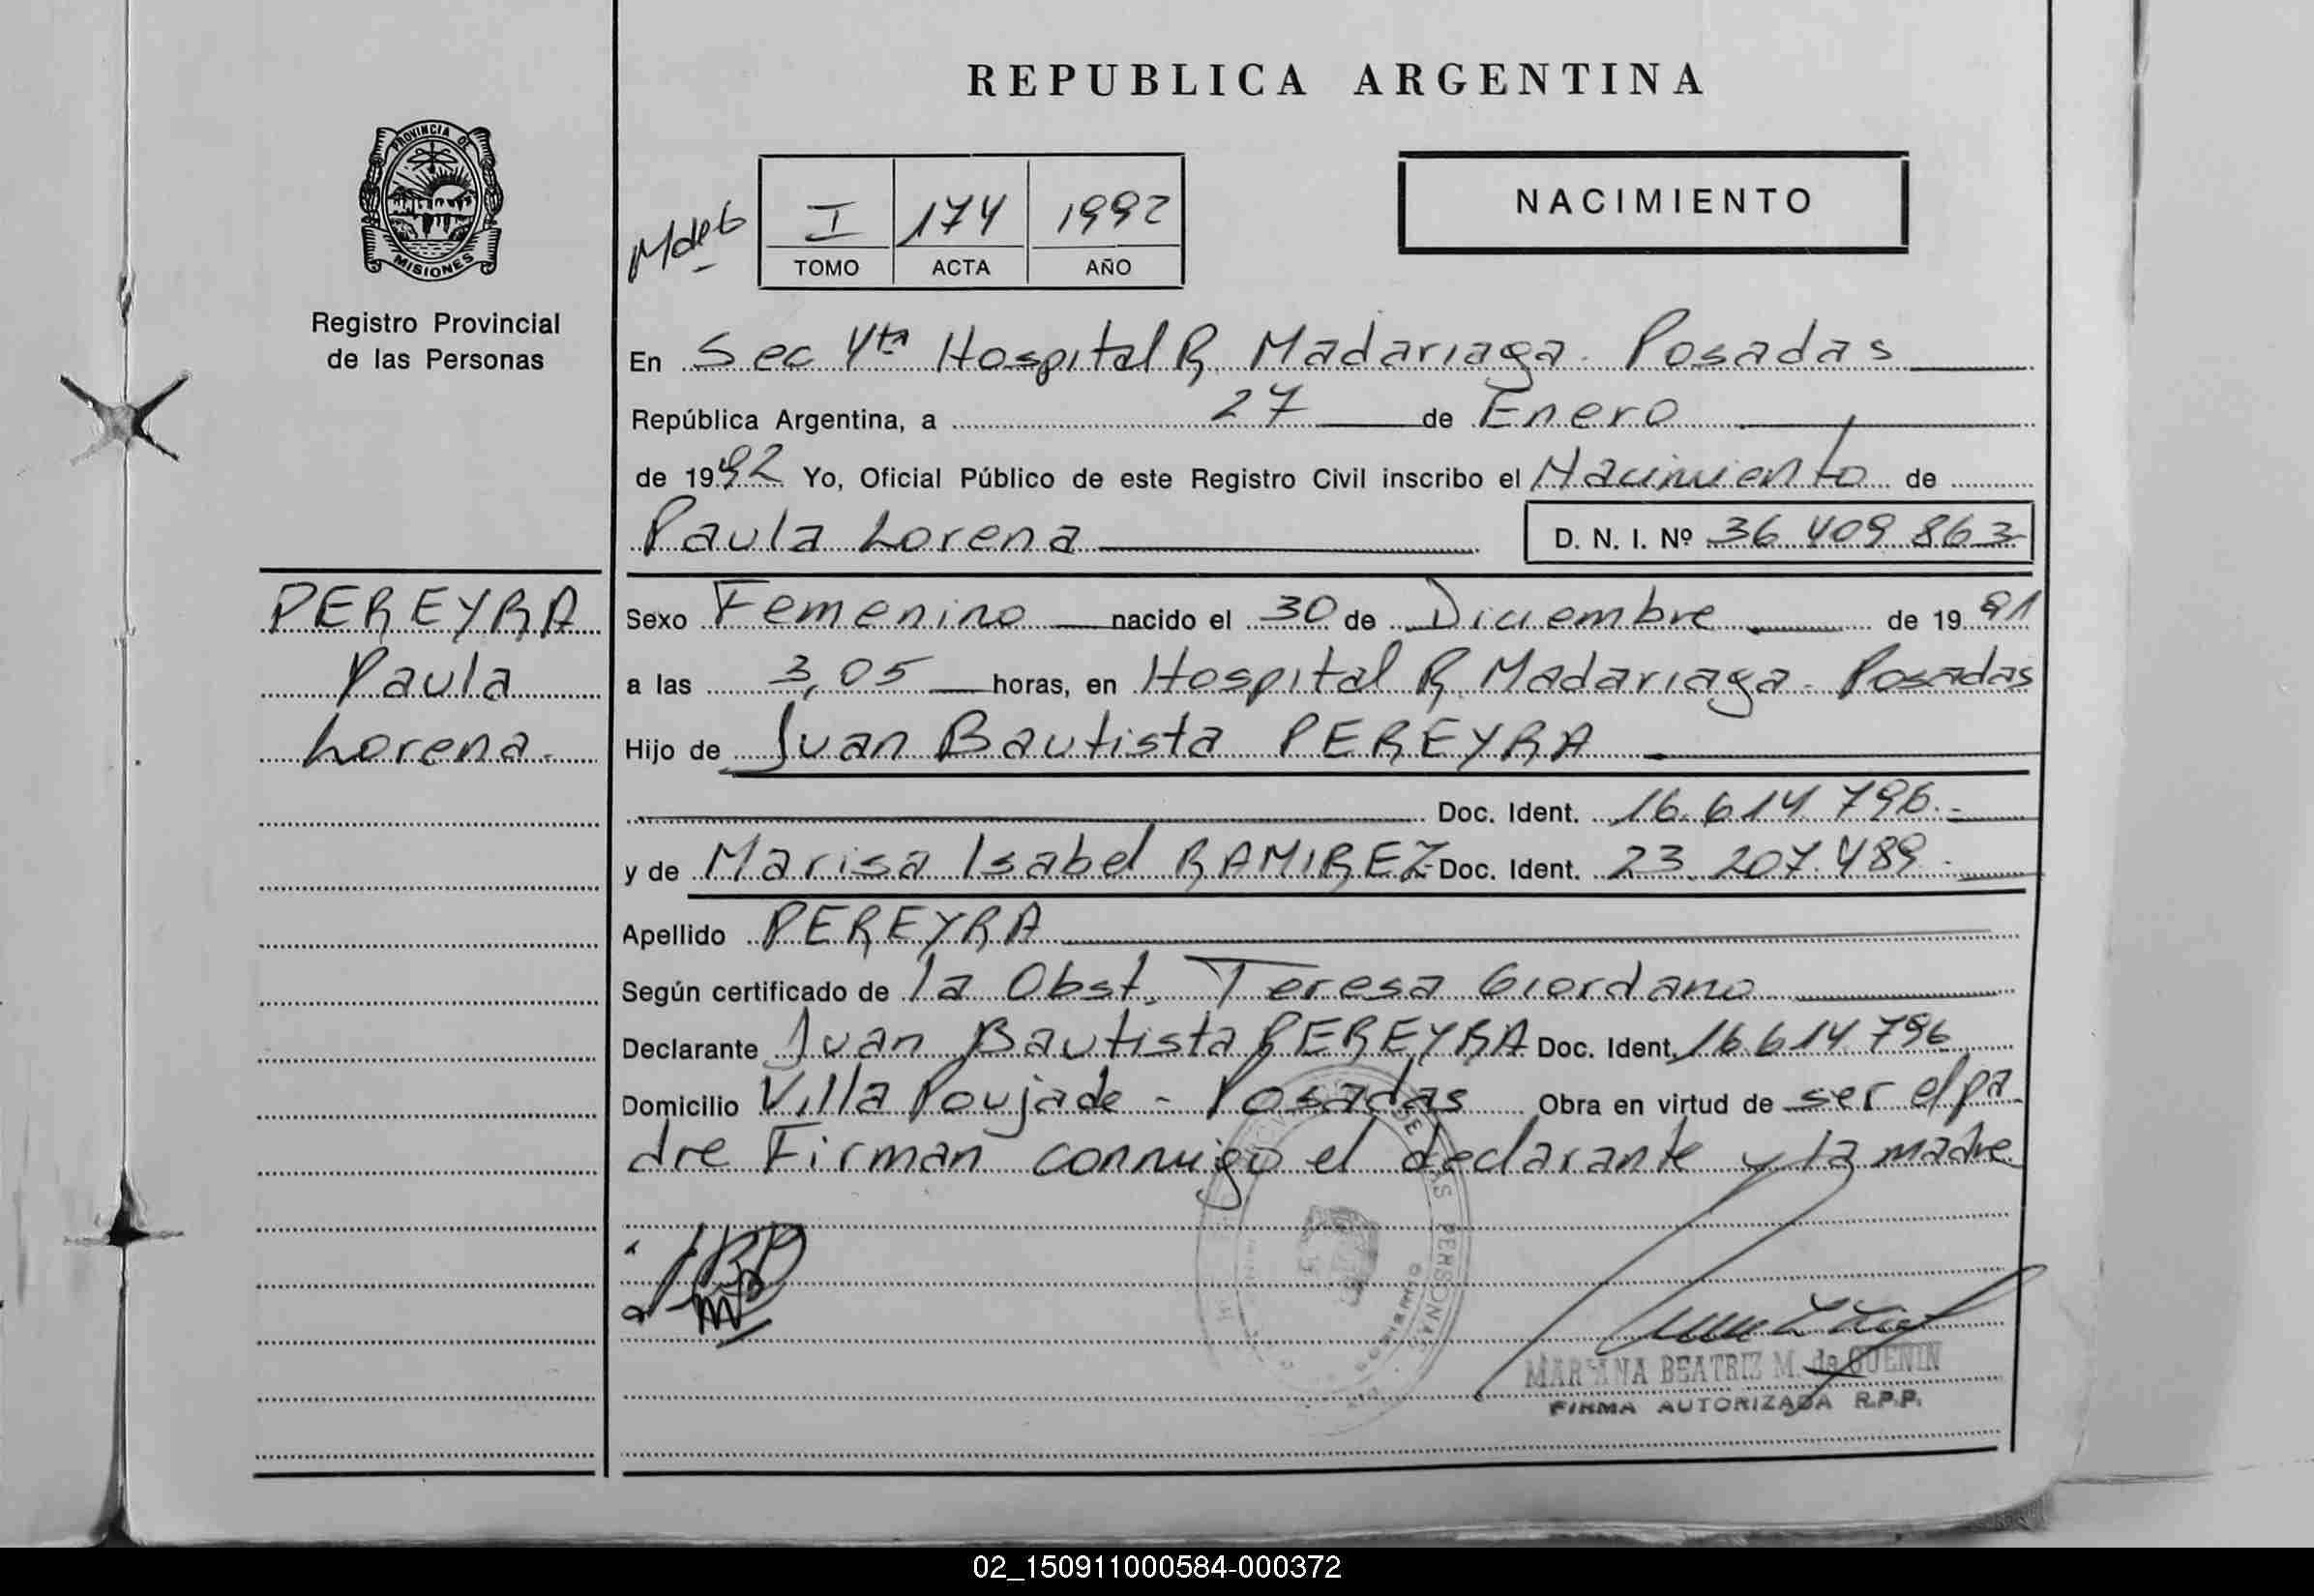 REPUBLICA ARGENTINA
PROVINCIA DE
MISIONES
Registro Provincial
de las Personas
NACIMIENTO
I 174 1992
TOMO ACTA AÑO
En Sec 4ta Hospital R. Madariaga. Posadas
República Argentina, a 27 de Enero
de 1992 Yo, Oficial Público de este Registro Civil inscribo el Nacimiento de
Paula Lorena D. N. I. Nº 36 409 863
PEREYRA
Paula
Lorena.
Sexo Femenino nacido el 30 de Diciembre de 1991
a las 3,05 horas, en Hospital R. Madariaga. Posadas
Hijo de Juan Bautista PEREYRA
Doc. Ident. 16.614.796.-
y de Marisa Isabel RAMIREZ Doc. Ident. 23.207.489.-
Apellido PEREYRA
Según certificado de la Obst. Teresa Giordano
Declarante Juan Bautista PEREYRA Doc. Ident. 16.614.796
Domicilio Villa Poujade - Posadas Obra en virtud de ser el pa
dre Firman conmigo el declarante y la madre
DE LAS PERSONAS
MARIANA BEATRIZ M. de GUENIN
FIRMA AUTORIZADA R.P.P.
02_150911000584-000372